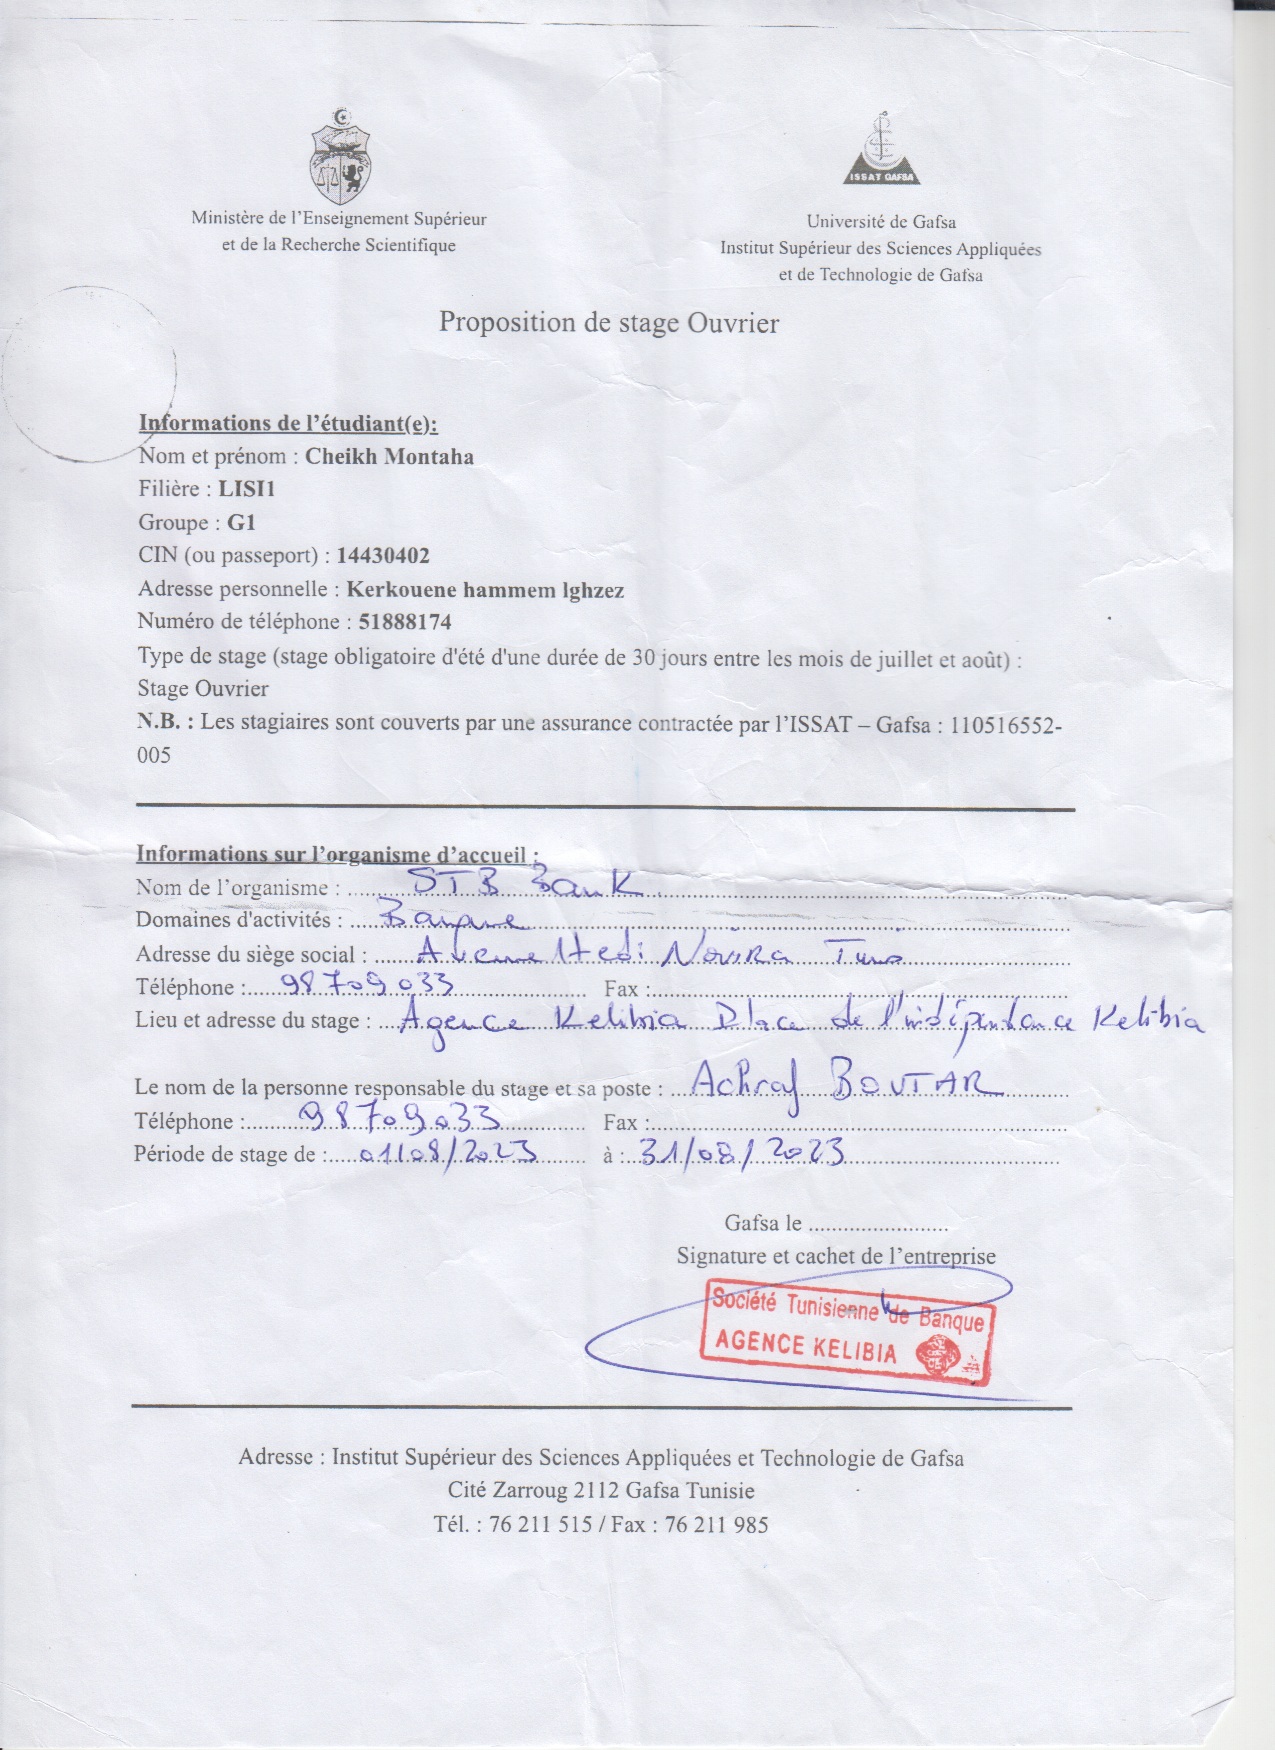 ISSAT GAFSA
Ministère de l'Enseignement Supérieur
et de la Recherche Scientifique
Université de Gafsa
Institut Supérieur des Sciences Appliquées
et de Technologie de Gafsa
Proposition de stage Ouvrier
Informations de l'étudiant(e):
Nom et prénom : Cheikh Montaha
Filière : LISI1
Groupe : G1
CIN (ou passeport) : 14430402
Adresse personnelle : Kerkouene hammem lghzez
Numéro de téléphone : 51888174
Type de stage (stage obligatoire d'été d'une durée de 30 jours entre les mois de juillet et août) :
Stage Ouvrier
N.B. : Les stagiaires sont couverts par une assurance contractée par l'ISSAT – Gafsa : 110516552-
005
Informations sur l'organisme d'accueil :
Nom de l'organisme : STB Bank
Domaines d'activités : Banque
Adresse du siège social : Avenue Hedi Novira Tunis
Téléphone : 98709033 Fax :
Lieu et adresse du stage : Agence Kelibia Place de l'indépendance Kelibia
Le nom de la personne responsable du stage et sa poste : Achraf BOUTAR
Téléphone : 98709033 Fax :
Période de stage de : 01/08/2023 à : 31/08/2023
Gafsa le ........................
Signature et cachet de l'entreprise
Société Tunisienne de Banque
AGENCE KELIBIA
Adresse : Institut Supérieur des Sciences Appliquées et Technologie de Gafsa
Cité Zarroug 2112 Gafsa Tunisie
Tél. : 76 211 515 / Fax : 76 211 985